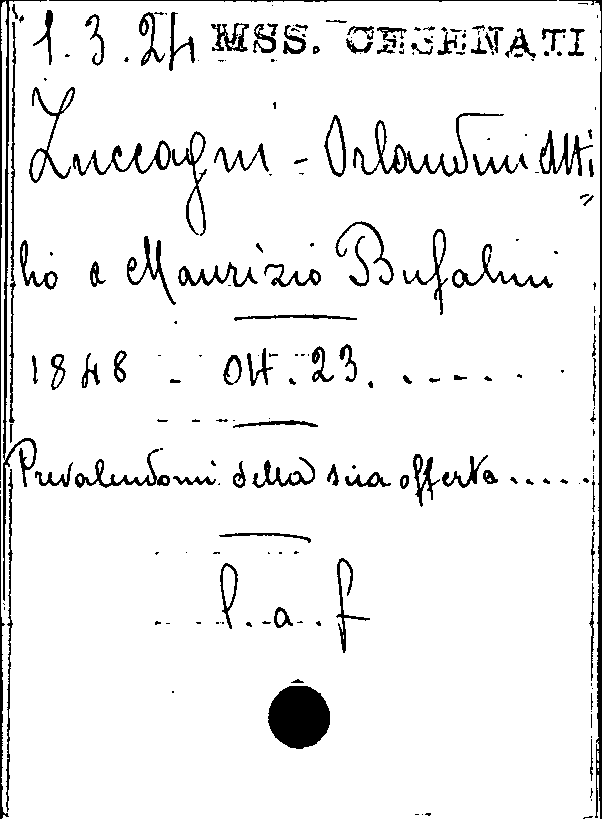 1.3.24 MSS. CESENATI
Zuccagni - Orlandini Atti=
lio a Maurizio Bufalini
1848 - Ott. 23. . - - . .
Prevalendomi della sua offerta.....
l. a. f